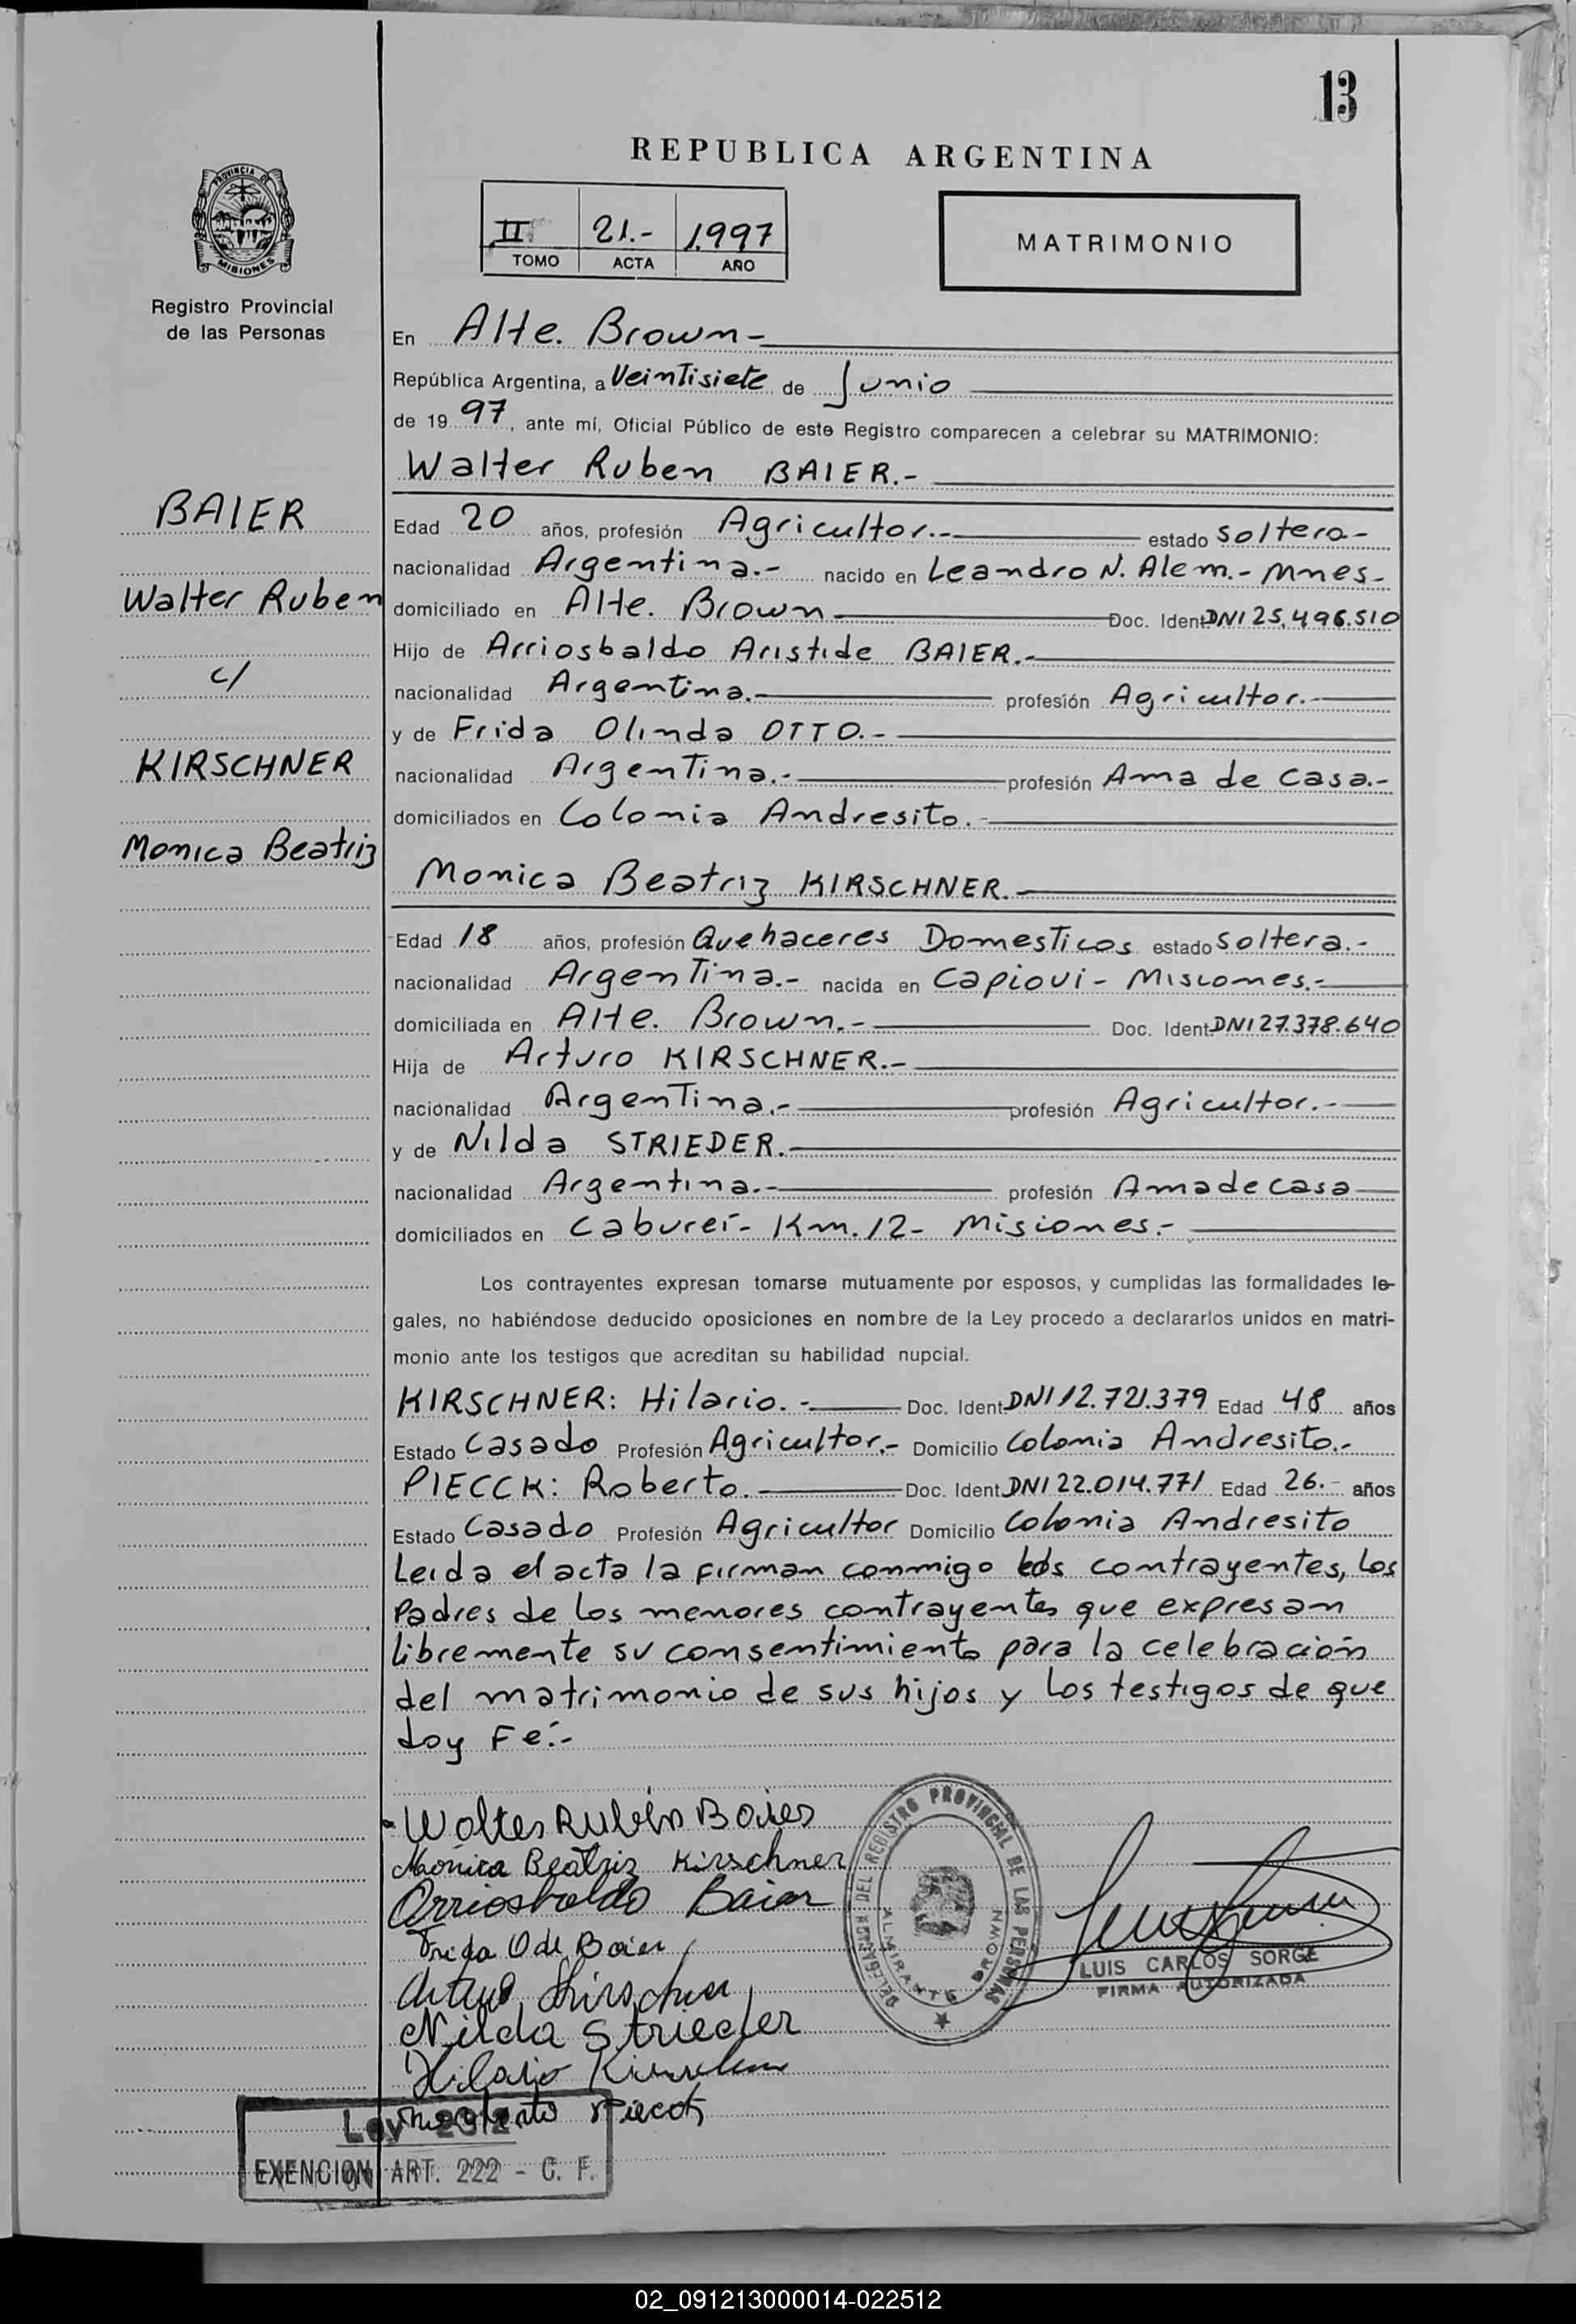 13
REPUBLICA ARGENTINA
PROVINCIA DE
MISIONES
Registro Provincial
de las Personas
II 21.- 1.997
TOMO ACTA AÑO
MATRIMONIO
En Alte. Brown-
República Argentina, a Veintisiete de Junio
de 19 97, ante mí, Oficial Público de este Registro comparecen a celebrar su MATRIMONIO:
Walter Ruben BAIER.-
BAIER
Edad 20 años, profesión Agricultor.- estado soltero-
nacionalidad Argentina.- nacido en Leandro N. Alem.- Mnes-
Walter Ruben
domiciliado en Alte. Brown Doc. Ident DNI 25.496.510
Hijo de Arriosbaldo Aristide BAIER.-
c/
nacionalidad Argentina. profesión Agricultor.-
y de Frida Olinda OTTO.-
KIRSCHNER
nacionalidad Argentina.- profesión Ama de casa.-
domiciliados en Colonia Andresito.-
Monica Beatriz
Monica Beatriz KIRSCHNER.-
Edad 18 años, profesión Quehaceres Domesticos estado soltera.-
nacionalidad Argentina.- nacida en Capiovi- Misiones.-
domiciliada en Alte. Brown.- Doc. Ident DNI 27.378.640
Hija de Arturo KIRSCHNER.-
nacionalidad Argentina.- profesión Agricultor.-
y de Nilda STRIEDER.-
nacionalidad Argentina.- profesión Ama de casa
domiciliados en Cabureí- Km. 12- Misiones.-
Los contrayentes expresan tomarse mutuamente por esposos, y cumplidas las formalidades le-
gales, no habiéndose deducido oposiciones en nombre de la Ley procedo a declararlos unidos en matri-
monio ante los testigos que acreditan su habilidad nupcial.
KIRSCHNER: Hilario.- Doc. Ident DNI 12.721.379 Edad 48 años
Estado Casado Profesión Agricultor.- Domicilio Colonia Andresito.-
PIECCK: Roberto. Doc. Ident DNI 22.014.771 Edad 26.- años
Estado Casado Profesión Agricultor Domicilio Colonia Andresito
Leida el acta la firman conmigo los contrayentes, los
Padres de los menores contrayentes que expresan
libremente su consentimiento para la celebración
del matrimonio de sus hijos y los testigos de que
doy Fe.-
Walter Rubén Baier
Mónica Beatriz Kirschner
Arriosbaldo Baier
Frida O de Baier
Arturo Kirschner
Nilda Strieder
Hilario Kirschner
DELEGACION DEL REGISTRO PROVINCIAL DE LAS PERSONAS
ALMIRANTE BROWN
LUIS CARLOS SORGE
FIRMA AUTORIZADA
Ley
EXENCION ART. 222 - C. F.
02_091213000014-022512